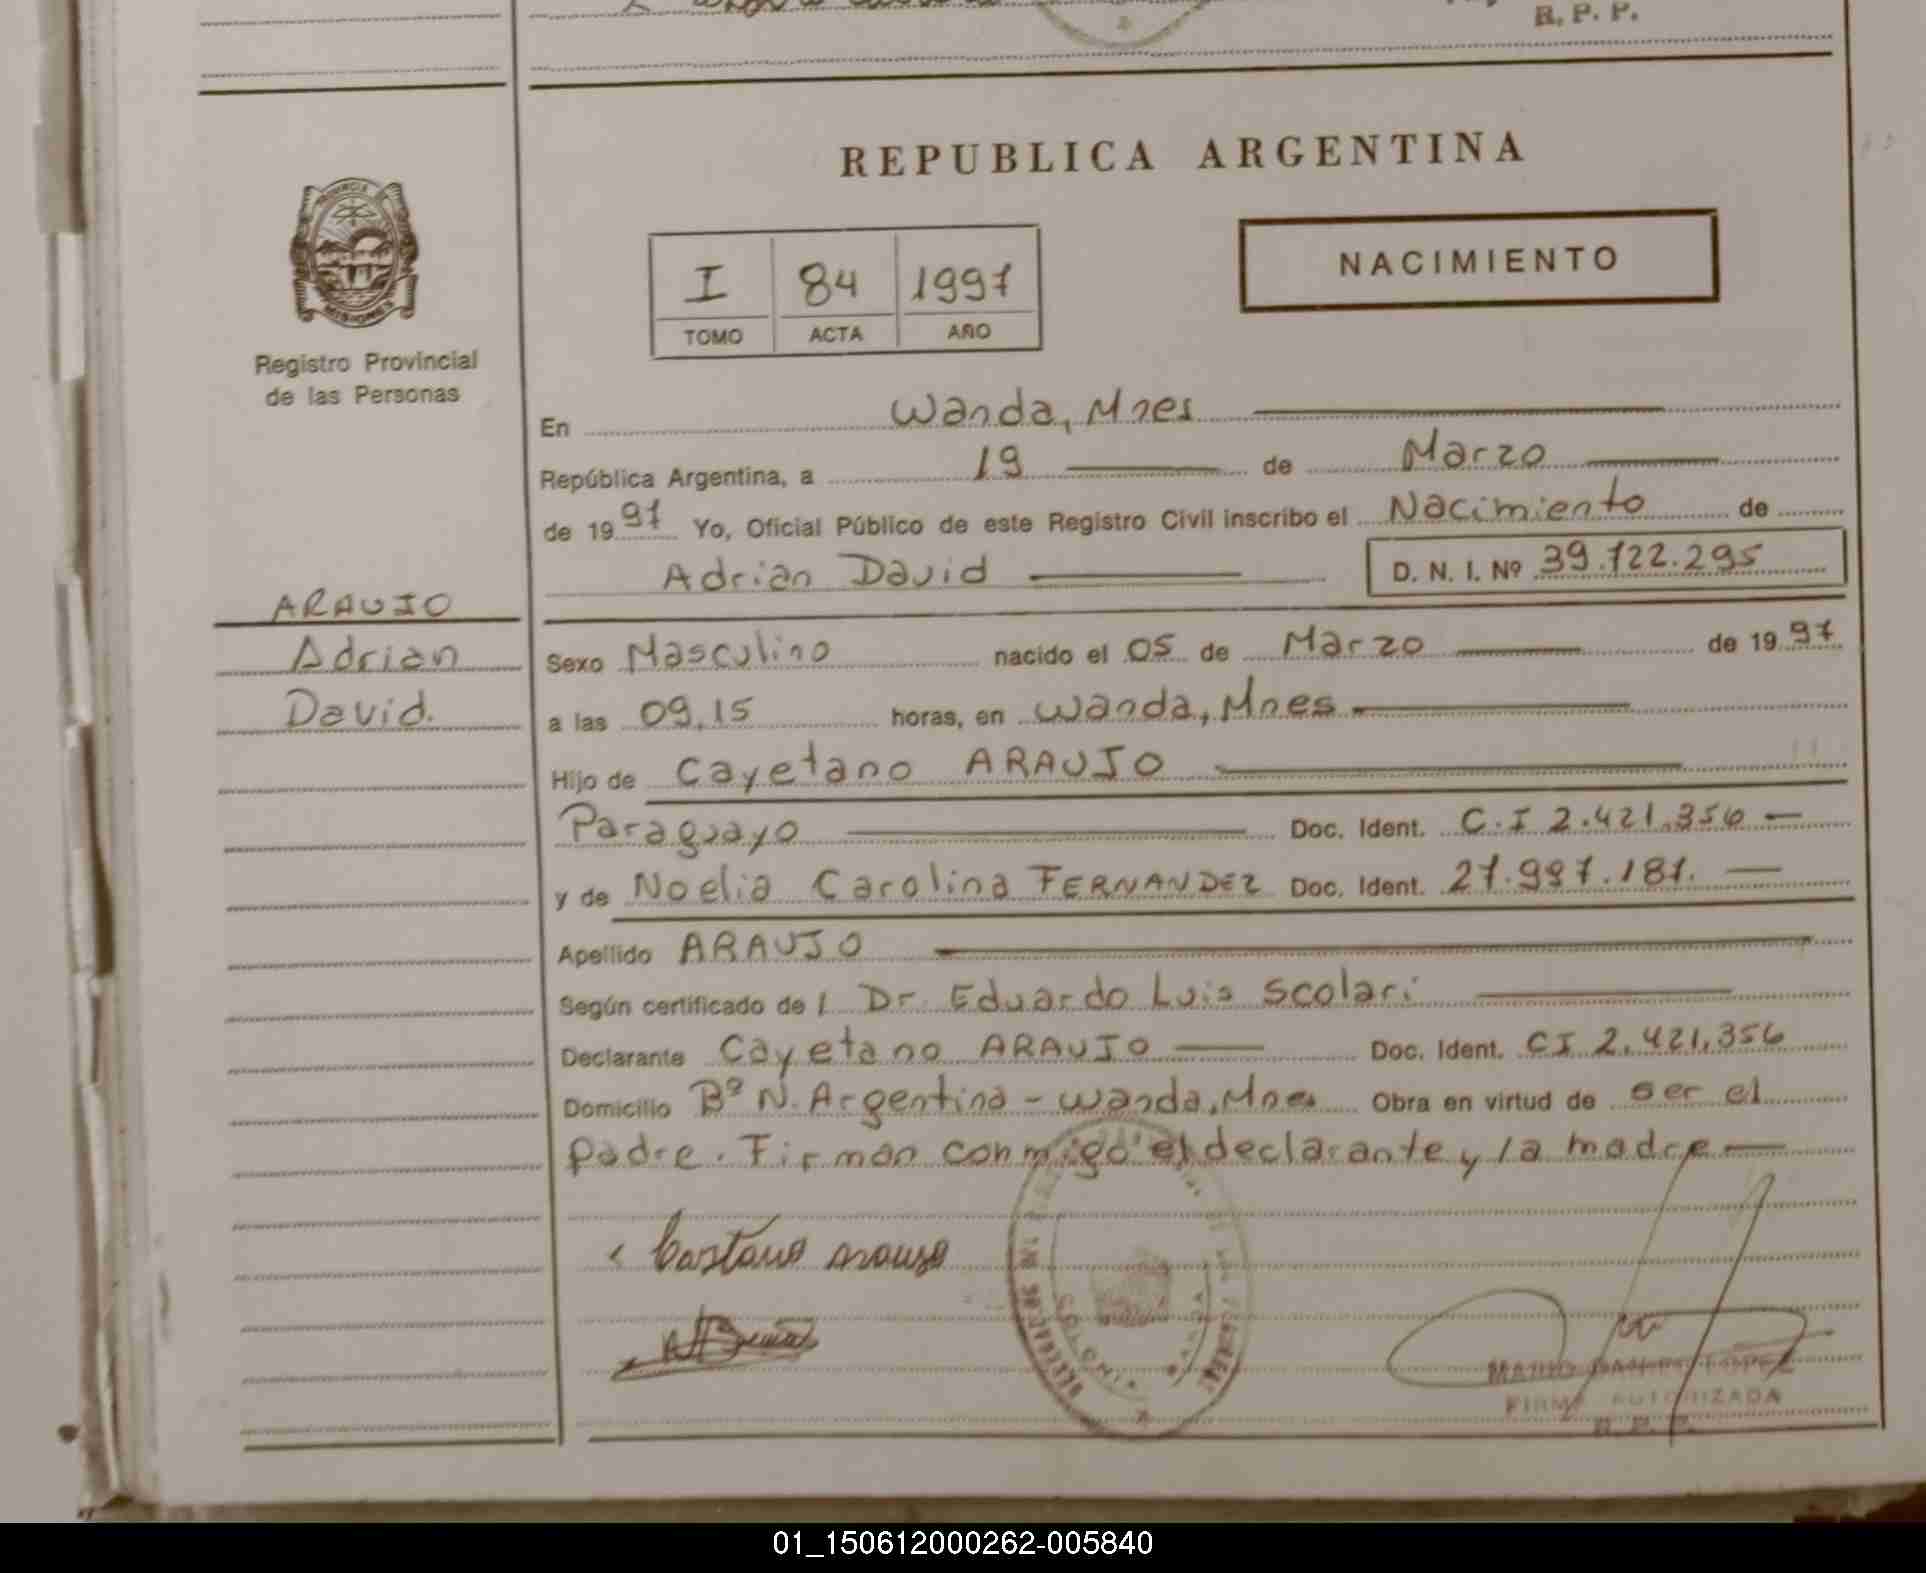 R. P. P.
REPUBLICA ARGENTINA
PROVINCIA
MISIONES
Registro Provincial
de las Personas
I 84 1997
TOMO ACTA AÑO
NACIMIENTO
En Wanda, Mnes
República Argentina, a 19 de Marzo
de 1997 Yo, Oficial Público de este Registro Civil inscribo el Nacimiento de
Adrian David D. N. I. Nº 39.122.295
ARAUJO
Adrian
David.
Sexo Masculino nacido el 05 de Marzo de 1997
a las 09,15 horas, en Wanda, Mnes
Hijo de Cayetano ARAUJO
Paraguayo Doc. Ident. C.I 2.421.356
y de Noelia Carolina FERNANDEZ Doc. Ident. 27.997.187.
Apellido ARAUJO
Según certificado de l Dr. Eduardo Luis Scolari
Declarante Cayetano ARAUJO Doc. Ident. CI 2.421.356
Domicilio Bº N. Argentina - Wanda, Mnes Obra en virtud de ser el
padre. Firman conmigo el declarante y la madre
FIRMA AUTORIZADA
R. P. P.
01_150612000262-005840